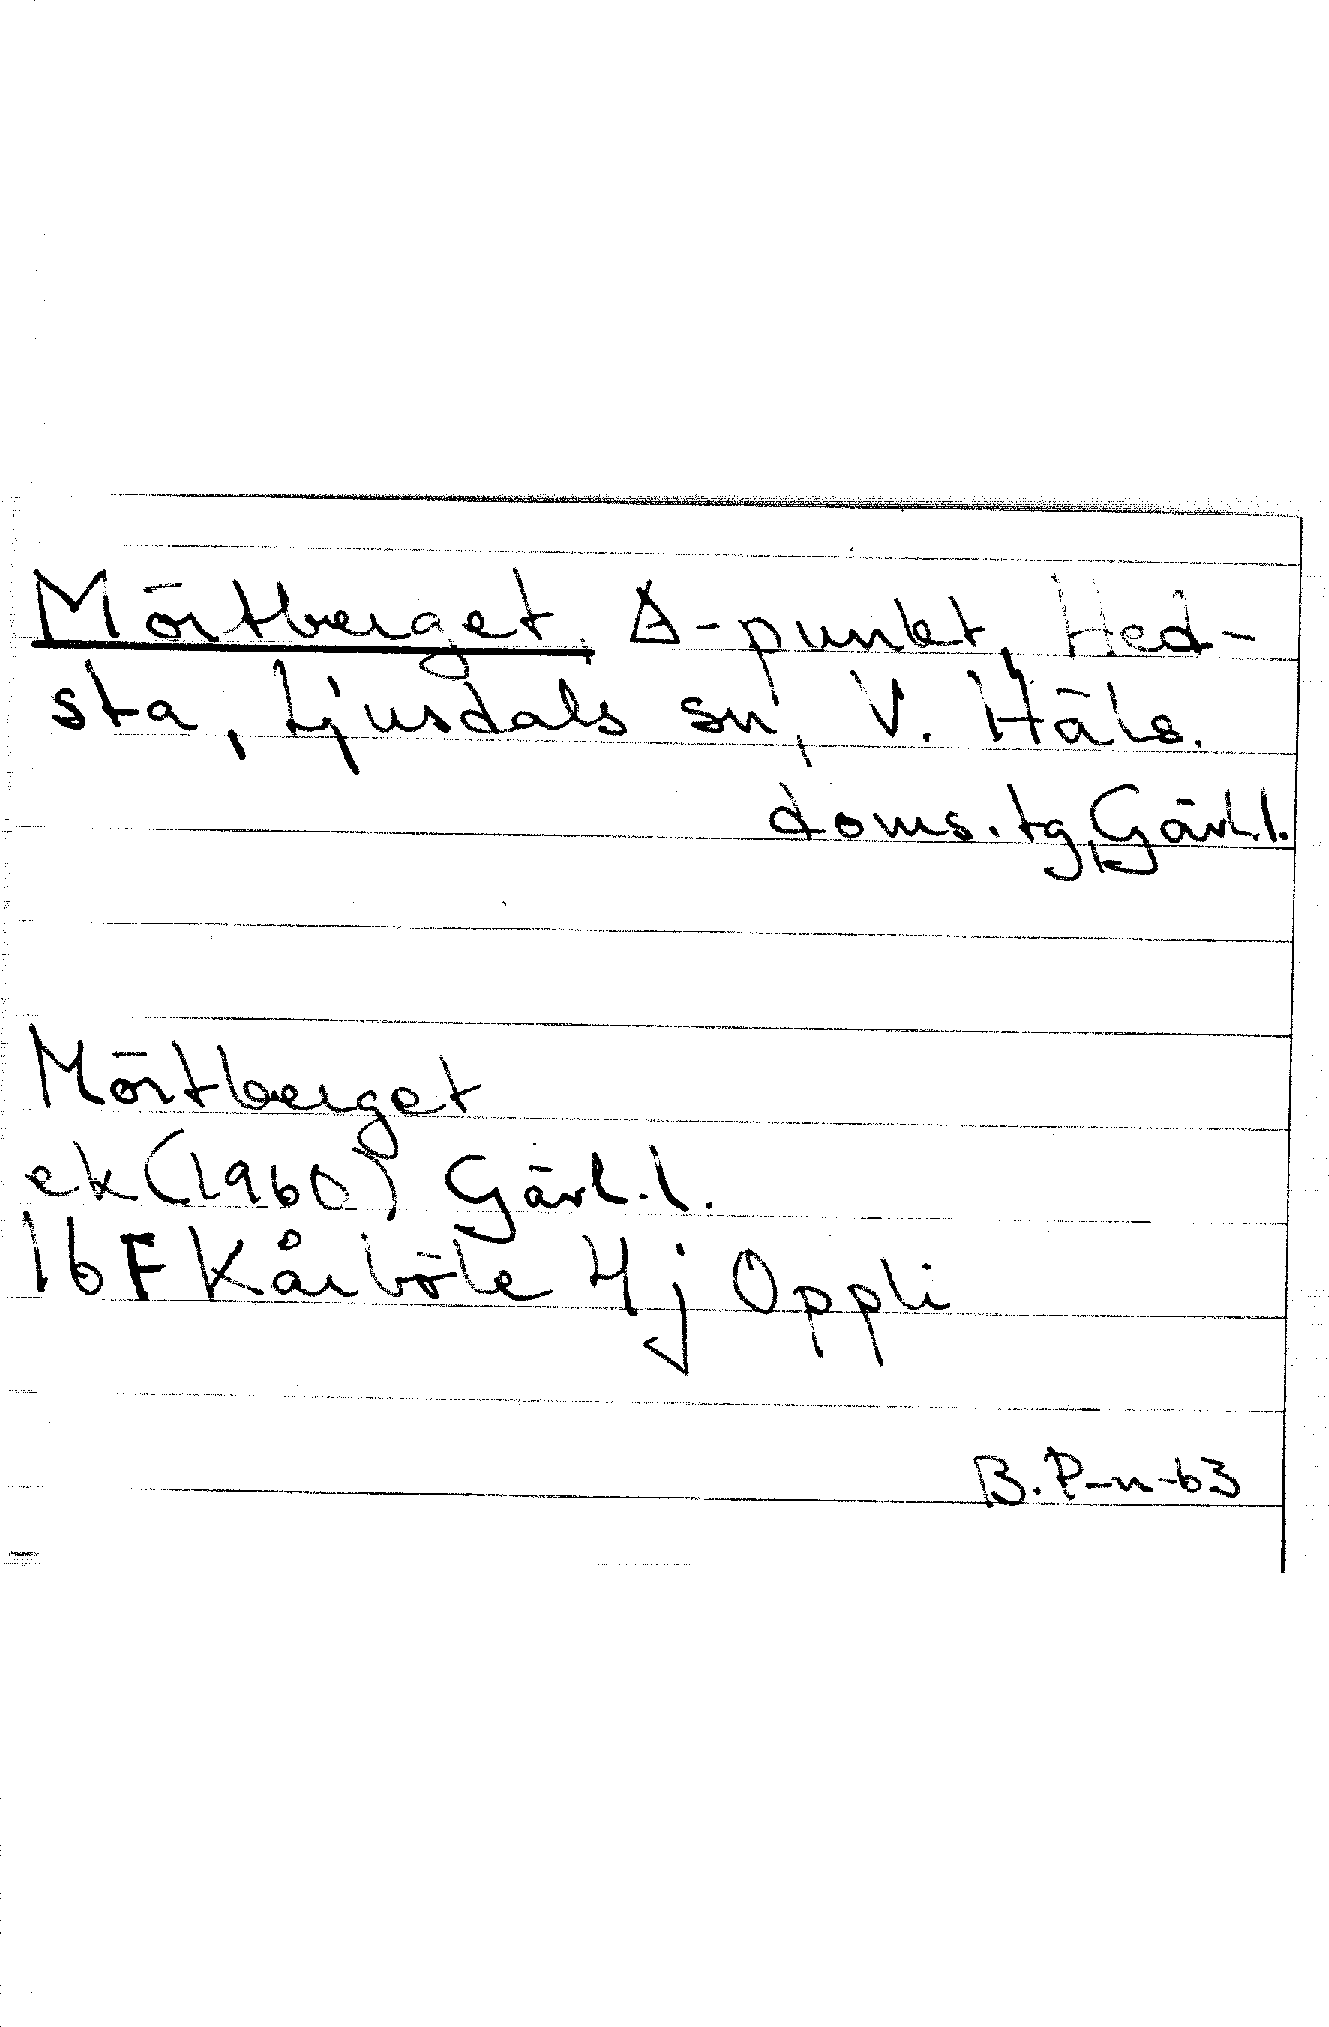 Mörtberget, Δ-punkt, Hed-
sta, Ljusdals sn, V. Häls.
doms.tg, Gävl.l.
Mörtberget
ek (1960) Gävl.l.
16F Kårböle 4j Oppli
B.P-n-63